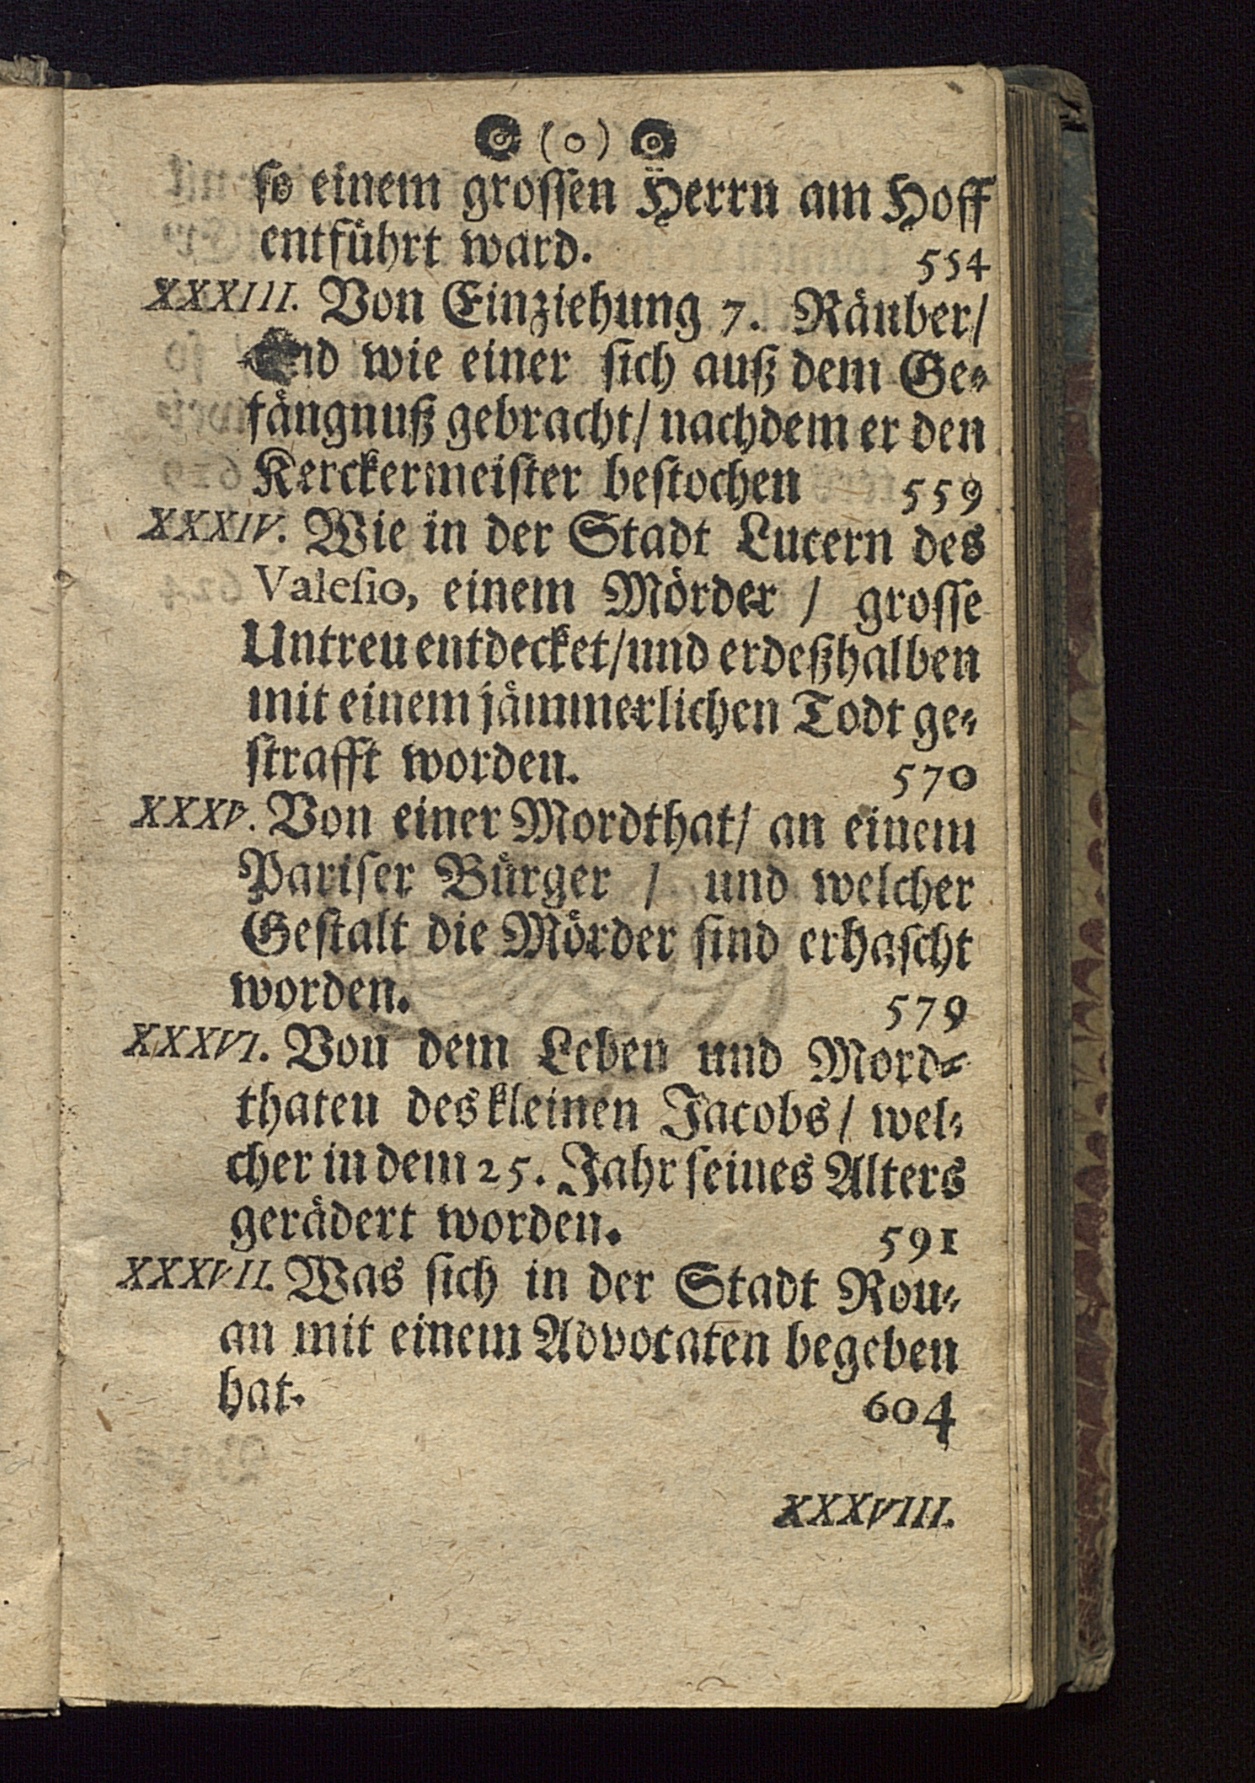 (o)
so einem grossen Herrn am Hoff
entführt ward. 554
XXXIII. Von Einziehung 7. Räuber/
und wie einer sich auß dem Ge-
fängnuß gebracht/ nachdem er den
Kerckermeister bestochen 559
XXXIV. Wie in der Stadt Lucern des
Valesio, einem Mörder / grosse
Untreu entdecket/ und er deßhalben
mit einem jämmerlichen Todt ge-
strafft worden. 570
XXXV. Von einer Mordthat/ an einem
Pariser Bürger / und welcher
Gestalt die Mörder sind erhascht
worden. 579
XXXVI. Von dem Leben und Mord-
thaten des kleinen Jacobs/ wel-
cher in dem 25. Jahr seines Alters
gerädert worden. 591
XXXVII. Was sich in der Stadt Rou-
an mit einem Advocaten begeben
hat. 604
XXXVIII.